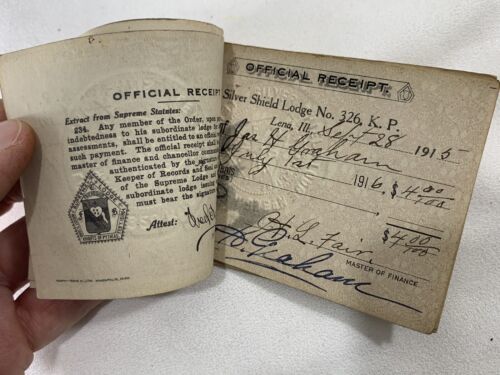 OFFICIAL RECEIPT
Extract from Supreme Statutes:
234. Any member of the Order, upon
indebtedness to his subordinate lodge
assessments, shall be entitled to an official
such payment. The official receipt shall
master of finance and chancellor
authenticated by the signature
Keeper of Records and Seal
of the Supreme Lodge and
subordinate lodge issuing
must bear the signature
Attest:
OFFICIAL RECEIPT.
Silver Shield Lodge No. 326, K. P.
Lena, Ill., Sept 28 1915
Jas H Graham
July 1st 1916 $4.00
$4.00
H. L. Fair.
MASTER OF FINANCE.
Graham